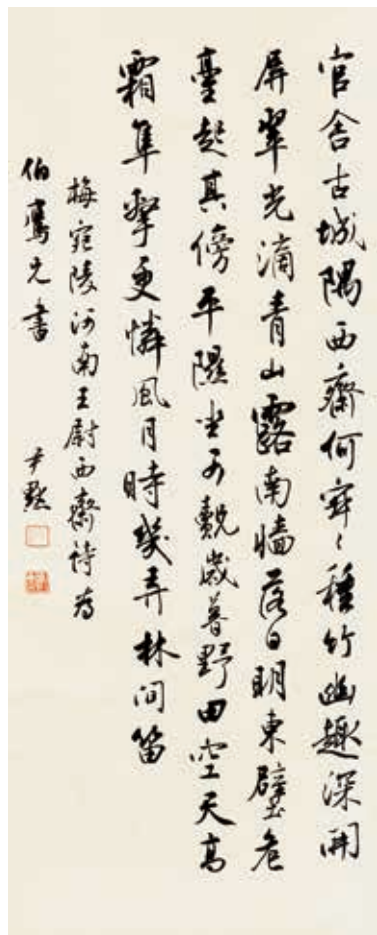 官舍古城隅西齋何寂〻種竹幽趣深開
屏翠光滴青山露南墻落日明東壁危
臺起其傍平隰坐可觀歲暮野田空天高
霜隼擊更憐風月時幾弄林間笛
梅宛陵河南王尉西齋詩為
伯鷹兄書
尹默